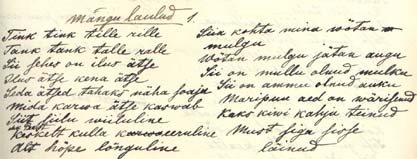 Mängu laulud 1.
Tink tink tille rille
Tank tank talle ralle
Sii sehes on ilus ätse
Ilus ätse kena ätse
Seda ätsed tahaks näha saaja
Mida karwa ätse kaswab
Siit siilu wiiluline
keskelt kulla karwa eeruline
Alt hõpe lõnguline
Siia kohta mina wõtan
mulgu
Wõtan mulgu jätan augu
Sii on mullu olnud mulku
Sii on ammu olnud auku
Maripuu aed on wärisenud
Kaks kiwi katju teinud
Must siga sisse
läinud